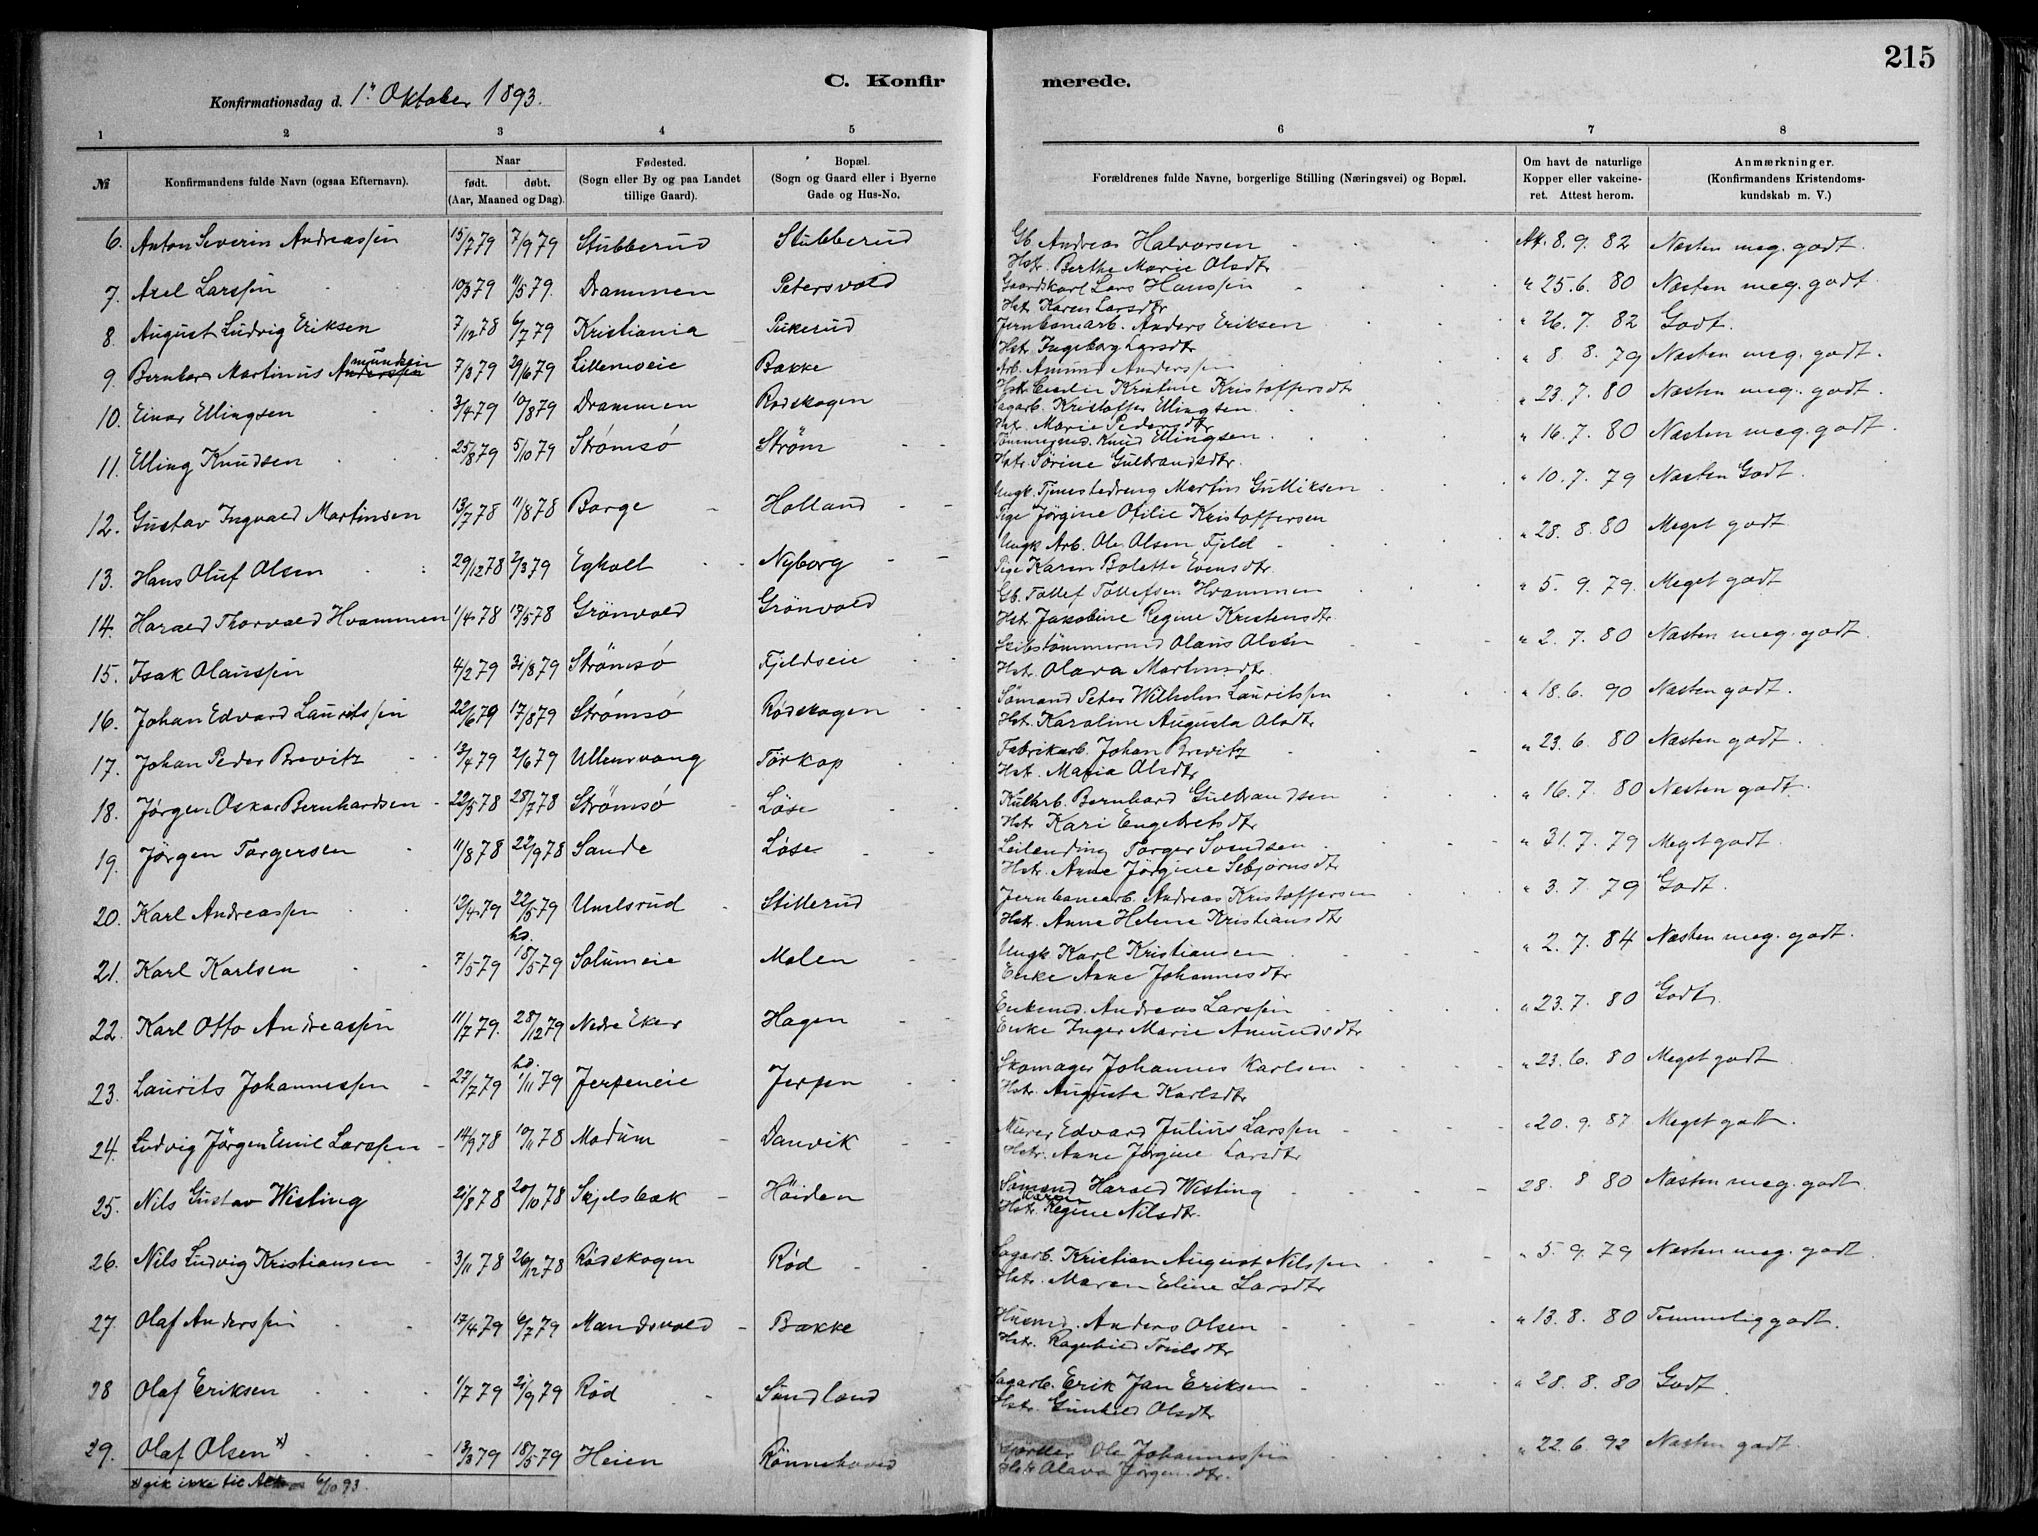 215
C. Konfirmerede.
Konfirmationsdag d. 1ᵗᵉ Oktober 1893.
1 2 3 4 5 6 7 8
№ Konfirmandens fulde Navn (ogsaa Efternavn). Naar født. døbt. (Aar, Maaned og Dag). Fødested. (Sogn eller By og paa Landet tillige Gaard). Bopæl. (Sogn og Gaard eller i Byerne Gade og Hus-No. Forældrenes fulde Navne, borgerlige Stilling (Næringsvei) og Bopæl. Om havt de naturlige Kopper eller vakcineret. Attest herom. Anmærkninger. (Konfirmandens Kristendomskundskab m. V.)
6. Anton Severin Andreassen 15/7 79 7/9 79 Stubberud Stubberud Gb. Andreas Halvorsen Att. 8. 9. 82 Næsten meg. godt.
Hst. Berthe Marie Olsdtr
7. Axel Larssen 10/3 79 11/5 79. Drammen Petersvold Gaardskarl Lars Hanssen " 25. 6. 80 Næsten meg. godt.
Hst. Karen Larsdtr
8. August Ludvig Eriksen 7/12 78 6/7 79 Kristiania Pukerud Jernbanearb. Anders Eriksen " 26. 7. 82 Godt.
Hst. Ingeborg Larsdtr
9. Bernhard Martinus Amundsen 7/3 79 29/6 79 Lillemoeie Bakke Arb. Amund Anderssen " 8. 8. 79 Næsten meg. godt.
Hst. Emilie Kristine Kristoffersdtr
10. Einar Ellingsen 3/4 79 10/8 79 Drammen Rødskogen Sagarb. Kristoffer Ellingsen " 23. 7. 80 Næsten meg. godt.
Hst. Marie Pedersdtr
11. Elling Knudsen 25/8 79 5/10 79 Strømsø Strøm Tømmermd. Knud Ellingsen " 16. 7. 80 Næsten meg. godt.
Hst. Sørine Gulbrandsdtr.
12. Gustav Ingvald Martinsen 13/7 78 11/8 78 Borge Holland Ungk. Tjenestedreng Martin Gulliksen " 10. 7. 79 Næsten Godt.
Pige Jørgine Otilie Kristoffersen
13. Hans Oluf Olsen 29/12 78 2/3 79 Egholt Nyborg Ungk. Arb. Ole Olsen Fjeld " 28. 8. 80 Meget godt
Pige Karen Bolette Evensdtr.
14. Harald Thorvald Hvammen 1/4 78 17/5 78 Grønvold Grønvold Gb. Tollef Tollefsen Hvammen " 5. 9. 79. Meget godt
Hst. Jakobine Regine Kristensdtr
15. Isak Olaussen 4/2 79 31/8 79 Strømsø Fjeldseie Skibstømmermd Olaus Olsen " 2. 7. 80 Næsten meg. godt.
Hst. Olava Martinsdtr
16. Johan Edvard Lauritssen 22/6 79 17/8 79 Strømsø Rødskogen Sømand Peter Wilhelm Lauritssen " 18. 6. 90 Næsten godt.
Hst. Karoline Augusta Olsdtr
17. Johan Peder Brevitz 13/4 79 2/6 79 Ullensvang Tørkop Fabrikarb. Johan Brevitz " 23. 6. 80 Næsten godt.
Hst. Maria Olsdtr
18. Jørgen Oskar Bernhardsen 22/5 78 28/7 78 Strømsø Løse Kulkrb. Bernhard Gulbrandsen " 16. 7. 80 Næsten godt.
Hstr Kari Engebretsdtr
19. Jørgen Torgersen 11/8 78 22/9 78 Sande Løse Leilending Torger Svendsen " 31. 7. 79 Meget godt.
Hstr. Anne Jørgine Sebjørnsdtr
20. Karl Andreassen 12/4 79 22/5 79 Unelsrud Stillerud Jernbanearb. Andreas Kristoffersen " 3. 7. 79 Godt.
Hstr. Anne Helene Kristiansdtr
21. Karl Karlsen 7/5 79 hd. 18/5 79 Solumeie Molen Ungk Karl Kristiansen " 2. 7. 84 Næsten meg. godt.
Enke Anne Johannesdtr
22. Karl Otto Andreassen 11/7 79. 28/12 79 Nedre Eker Hagen Enkemd. Andreas Larssen " 23. 7. 80 Godt
Enke Inger Marie Amundsdtr
23. Laurits Johannessen 27/7 79 hd. 1/11 79 Jerpeneie Jerpen Skomager Johannes Karlsen " 23. 6. 80 Meget godt
Hstr. Augusta Karlsdtr
24. Ludvig Jørgen Emil Larssen 14/9 78 10/11 78 Modum Danvik Murer Edvard Julius Larssen " 20. 9. 87 Meget godt.
Hstr. Anne Jørgine Larsdtr
25. Nils Gustav Wisting 21/8 78 20/10 78 Skjelsbæk Høiden Sømand Harald Wisting 28. 8 80 Næsten meg. godt.
Hstr. Karen Regine Nilsdtr.
26. Nils Ludvig Kristiansen 3/11 78 26/12 78 Rødskogen Rød Sagarb. Kristian August Nilssen " 5. 9. 79 Næsten meg. godt.
Hstr. Maren Eline Larsdtr
27. Olaf Anderssen 17/4 79 6/7 79 Mandsvold Bakke Husmd. Anders Olsen " 13. 8. 80 Temmelig godt.
Hstr. Ragnhild Troilsdtr
28 Olaf Eriksen 1/7 79 21/9 79 Rød Sundland Sagarb. Erik Jan Eriksen " 28. 8. 80 Godt.
Hstr. Gunhild Olsdtr
29. Olaf Olsen x) 13/3 79 18/5 79 Heien Rønnehoved Ole Johannessen " 22. 6. 92 Næsten godt.
Hstr Olava Jørgensdtr.
x) gik ikke til 6/10 93.